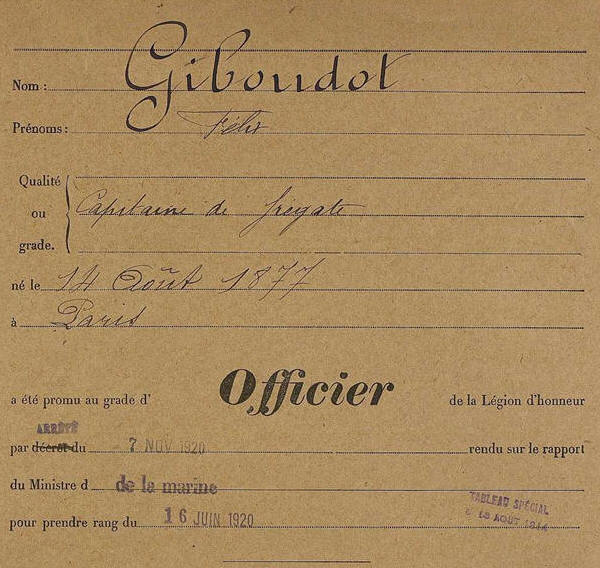 Nom : Giboudot
Prénoms : Félix
Qualité
ou
grade.
Capitaine de fregate
né le 14 Août 1877
à Paris
a été promu au grade d' Officier de la Légion d'honneur
ARRÊTÉ
par décret du 7 NOV 1920 rendu sur le rapport
du Ministre d de la marine
TABLEAU SPÉCIAL
pour prendre rang du 16 JUIN 1920
AOUT